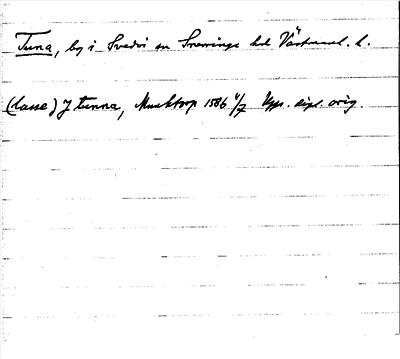 Tuna, by i Svedvi sn Snevringe hd Västmanl. l.
(Lasse) J tunna, Munktorp 1506 4/7 Upps. dipl. orig.